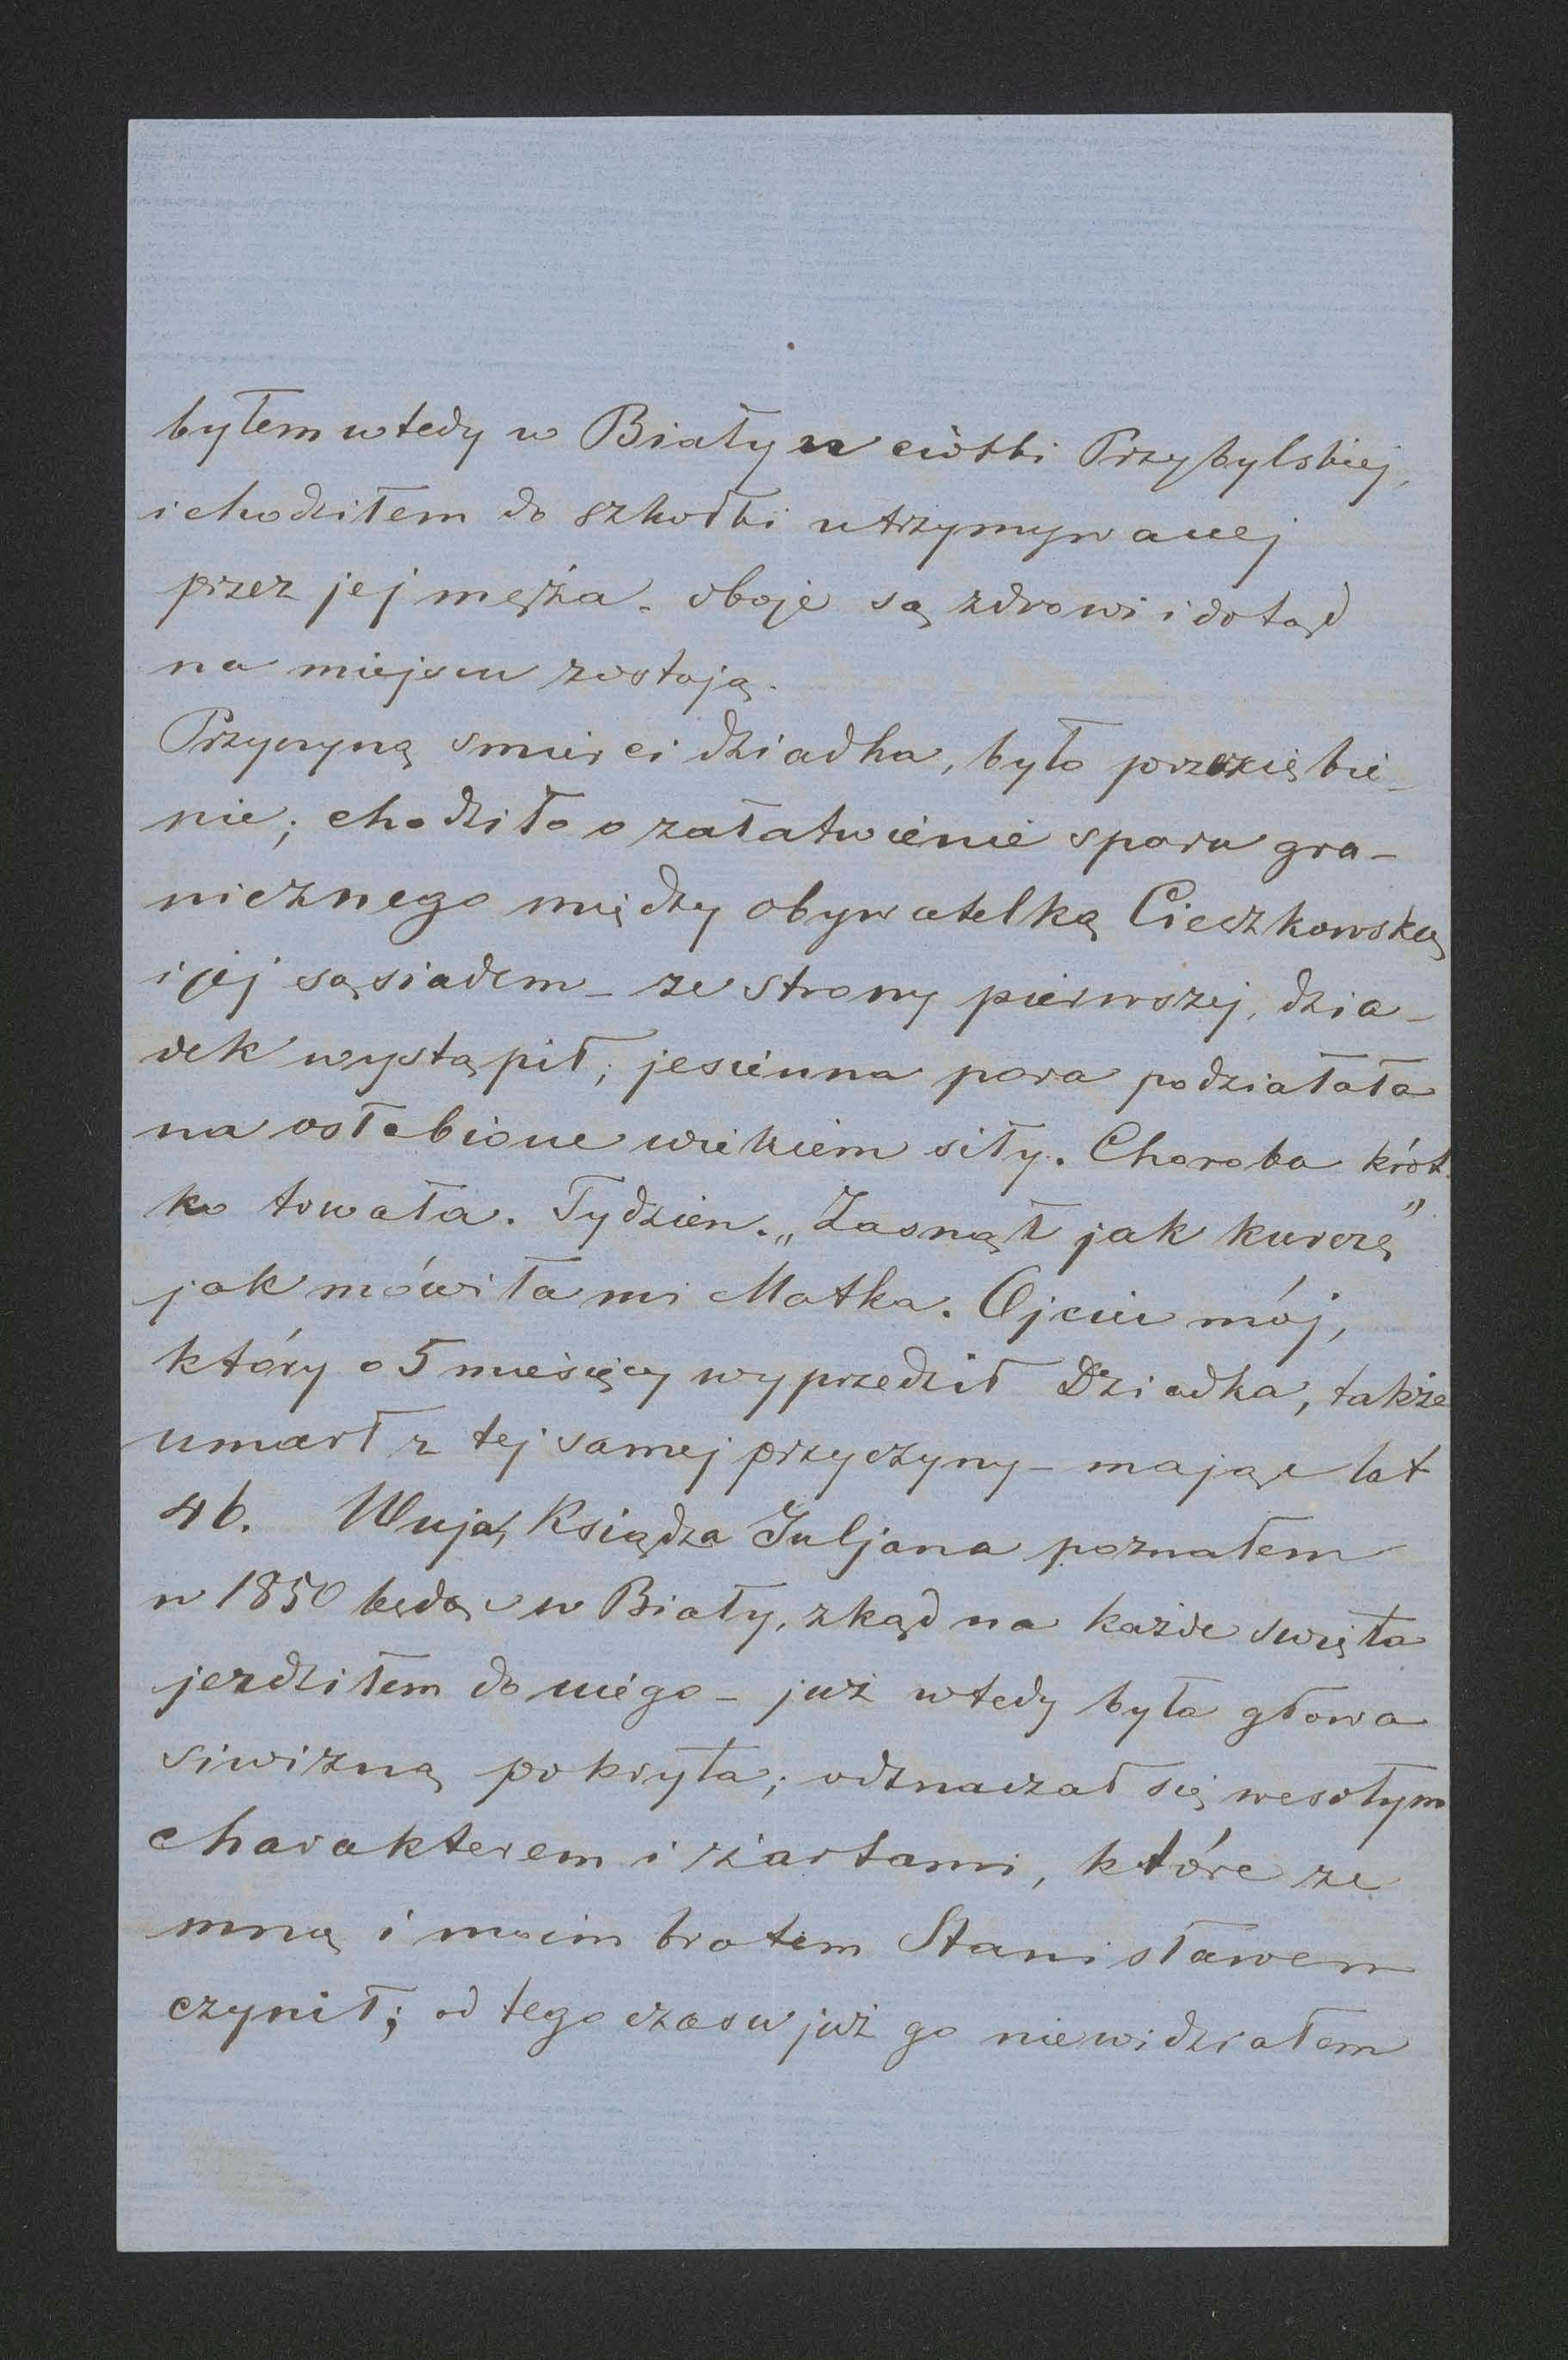 byłem wtedy w Biały u ciotki Przybylskiej,
i chodziłem do szkołki utrzymywanej
przez jej męża. oboje są zdrowi i dotąd
na miejscu zostają.
Przyczyną smierci dziadka, było przeziębie-
nie; chodziło o załatwienie sporu gra-
nicznego między obywatelką Cieszkowską
i jej sąsiadem – ze strony pierwszej, dzia-
dek wystąpił; jesienna pora podziałała
na osłabione wiekiem siły. Choroba krót-
ko trwała. Tydzien. „Zasnął jak kurczę”
jak mówiła mi Matka. Ojciec mój,
który o 5 miesięcy wyprzedził Dziadka, także
umarł z tej samej przyczyny – mając lat
46. Wuja, Księdza Juljana poznałem
w 1850 będąc w Biały, zkąd na każde swięta
jezdziłem do niego – już wtedy była głowa
siwizną pokryta; odznaczał się wesołym
charakterem i żartami, które ze
mną i moim bratem Stanisławem
czynił; od tego czasu już go niewidziałem